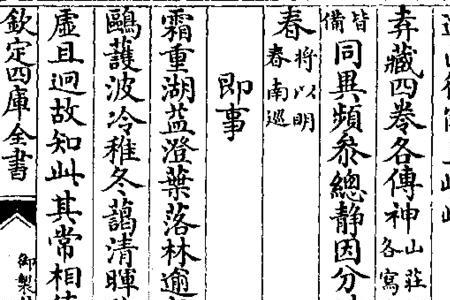 弆藏四卷各傳神山莊各寫
皆備同異頻叅總靜因分
春將以明春南巡
即事
霜重湖益澄葉落林逾
鷗護波冷稚冬藹清暉
虛且迥故知此其常相
欽定四庫全書 御製